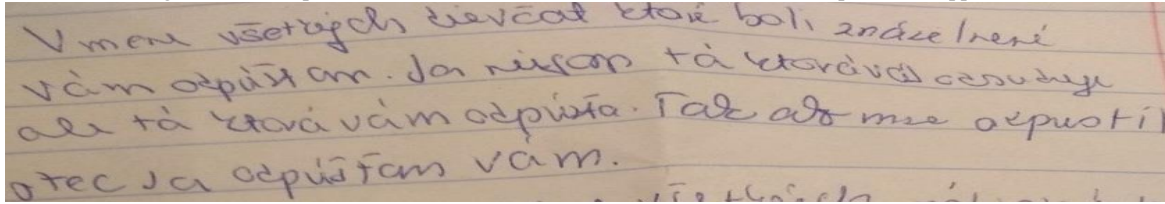 V mene všetkých dievčat ktoré boli znásilnené
vám odpúšťam. Ja niesom tá ktorá vás odsudzuje
ale tá ktorá vám odpúšťa. Tak ako mne odpustil
otec Ja odpúšťam vám.